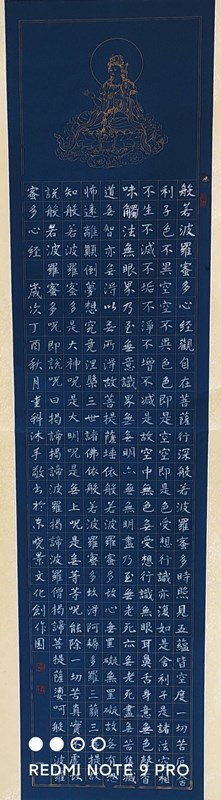 般若波羅蜜多心經觀自在菩薩行深般若波羅蜜多時照見五蘊皆空度一切苦
利子色不異空空不異色色即是空空即是色受想行識亦復如是舍利子是諸法空
不生不滅不垢不淨不增不減是故空中無色無受想行識無眼耳鼻舌身意無色聲香
味觸法無眼界乃至無意識界無無明亦無無明盡乃至無老死亦無老死盡無苦集滅
道無智亦無得以無所得故菩提薩埵依般若波羅蜜多故心無罣礙無罣礙故無有
怖遠離顛倒夢想究竟涅槃三世諸佛依般若波羅蜜多故得阿耨多羅三藐三菩提故
知般若波羅蜜多是大神呪是大明呪是無上呪是無等等呪能除一切苦真實不虛故
說般若波羅蜜多呪即說呪曰揭諦揭諦波羅揭諦波羅僧揭諦菩提薩婆呵般若波羅
蜜多心經 歲次丁酉秋月童科沐手敬書於東曉景文化創作園
REDMI NOTE 9 PRO